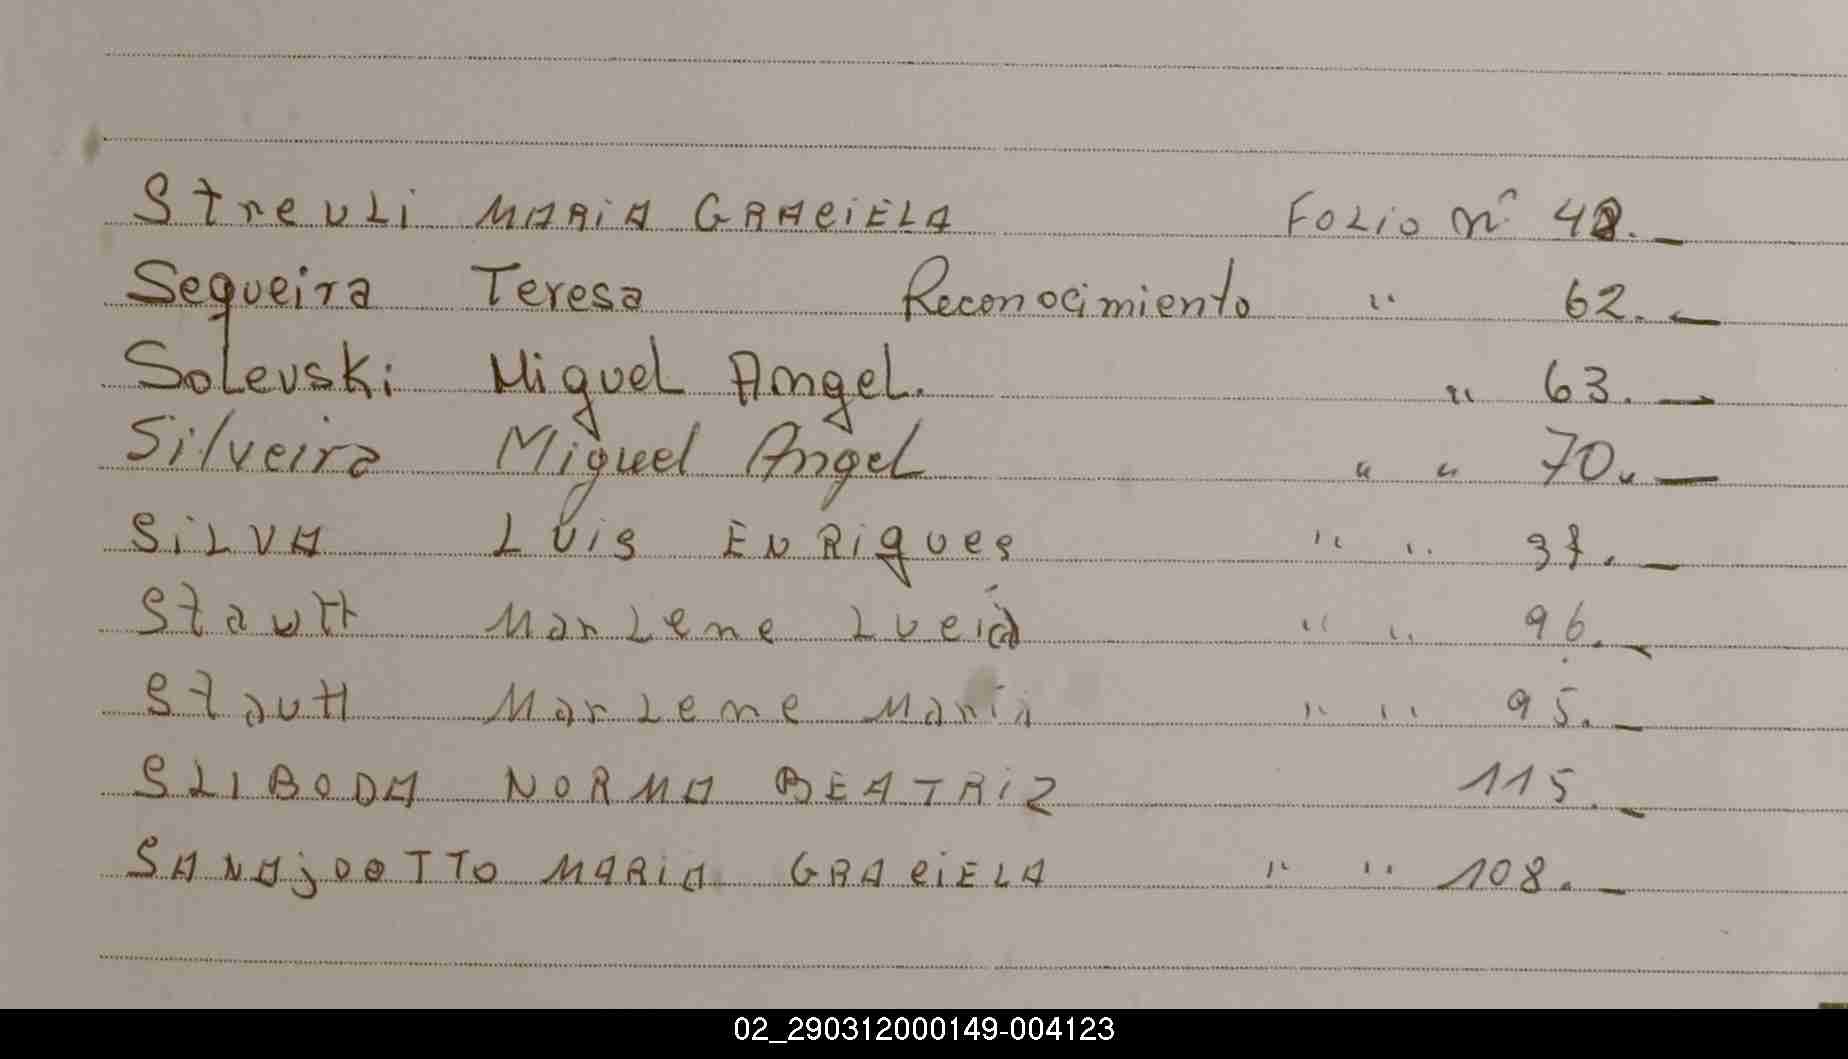 Streuli MARIA GRACIELA Folio nº 42._
Sequeira Teresa Reconocimiento " 62._
Solevski Miguel Angel. " 63._
Silveira Miguel Angel " " 70._
SiLVA LUis ENRiques " " 37._
Stautt Marlene Lucia " " 96._
Stautt Marlene Maria " " 95._
SLIBODA NORMA BEATRiz 115._
MARIA GRACiELA " " 108._
02_290312000149-004123